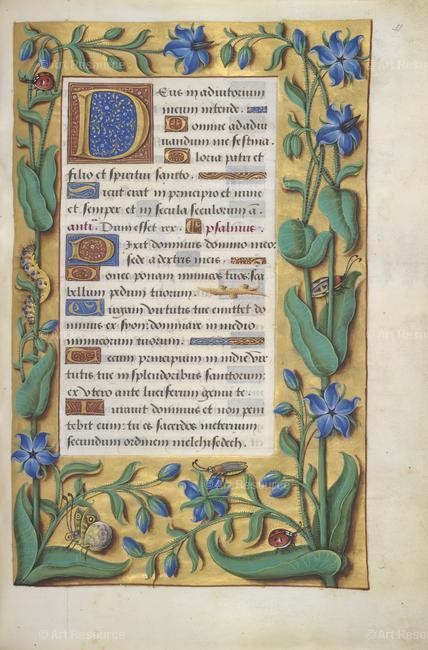 Deus in adiutorium
meum intende.
Domine ad adiu
uandum me festina.
Gloria patri et
filio et spiritui sancto.
Sicut erat in principio et nunc
et semper et in secula seculorum a.
anti. Dum esset rex. psalmus.
Dixit dominus domino meo:
sede a dextris meis.
Donec ponam inimicos tuos: sca
bellum pedum tuorum.
Virgam virtutis tue emittet do
minus ex syon: dominare in medio
inimicorum tuorum.
Tecum principium in die vir
tutis tue in splendoribus sanctorum:
ex utero ante luciferum genui te.
Iurauit dominus et non peni
tebit eum: tu es sacerdos in eternum
secundum ordinem melchisedech.
© Art Resource